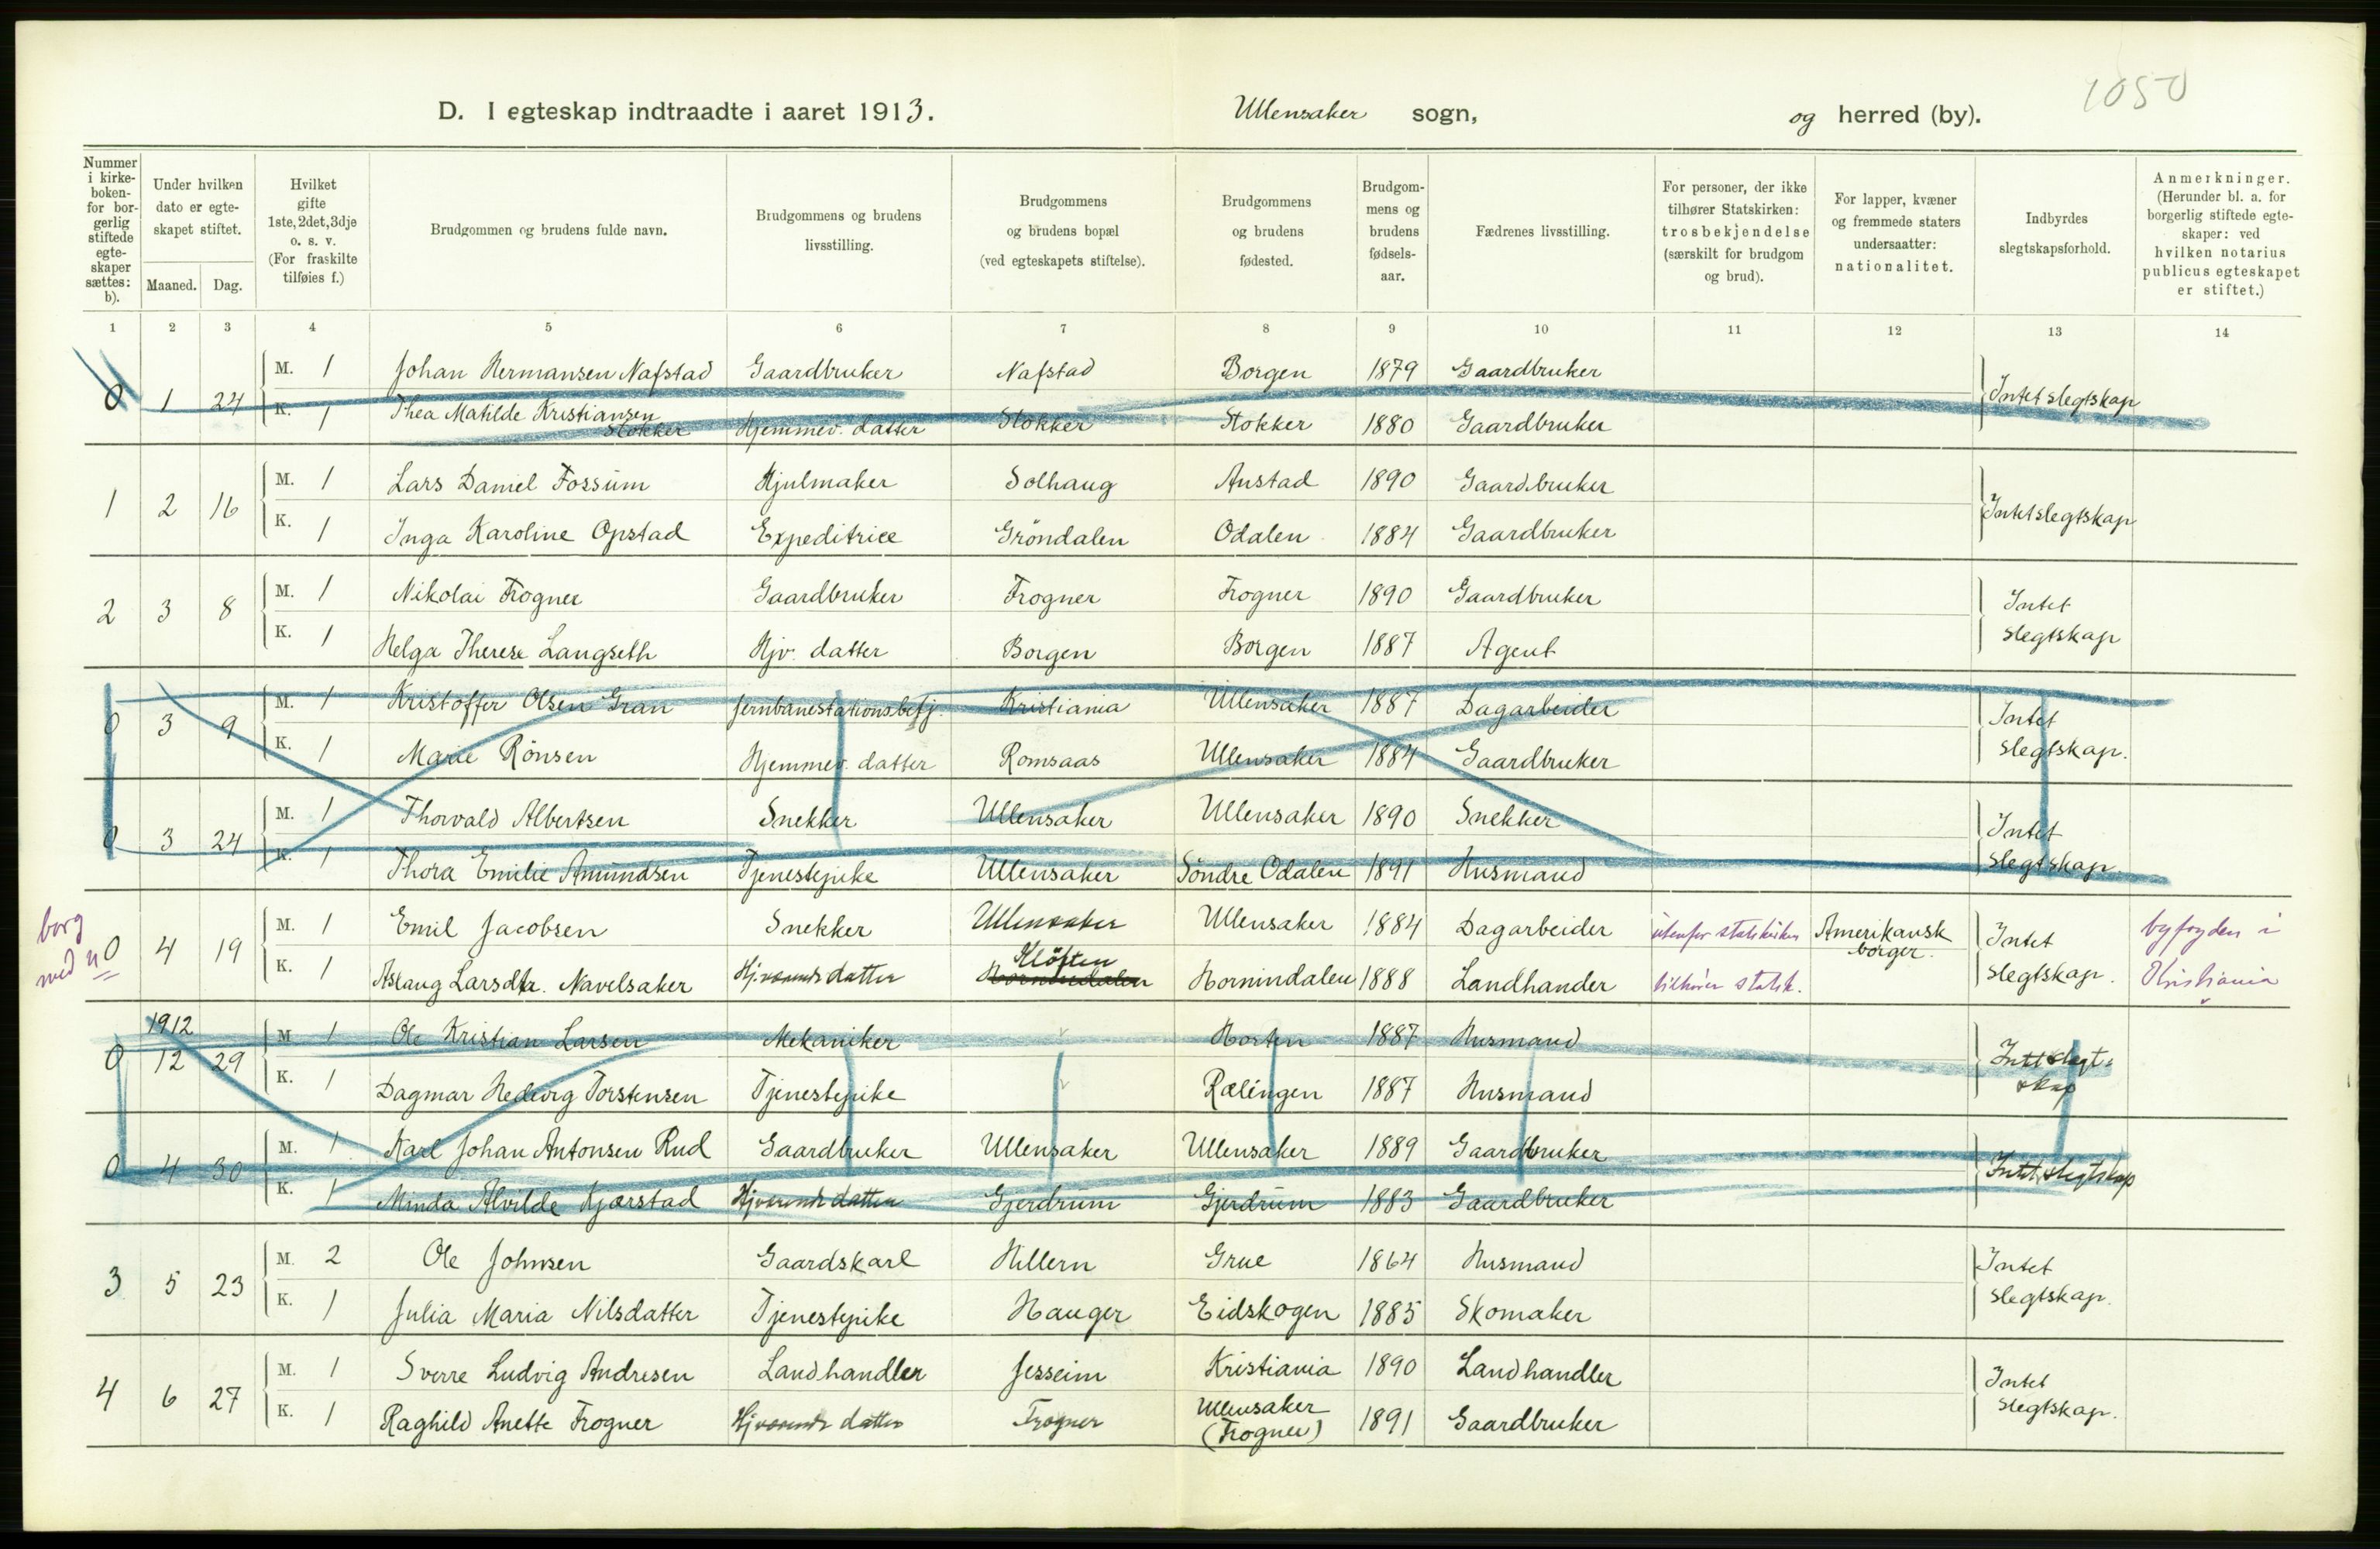 1050
D. I egteskap indtraadte i aaret 1913. Ullensaker sogn, og herred (by).
Nummer i kirke-boken- for bor-gerlig stiftede egte-skaper sættes: b).
Under hvilken dato er egte-skapet stiftet.
Maaned. Dag.
Hvilket gifte 1ste, 2det, 3dje o. s. v. (For fraskilte tilføies f.)
Brudgommen og brudens fulde navn.
Brudgommens og brudens livsstilling.
Brudgommens og brudens bopæl (ved egteskapets stiftelse).
Brudgommens og brudens fødested.
Brudgom-mens og brudens fødsels-aar.
Fædrenes livsstilling.
For personer, der ikke tilhører Statskirken: trosbekjendelse (særskilt for brudgom og brud).
For lapper, kvæner og fremmede staters undersaatter: nationalitet.
Indbyrdes slegtskapsforhold.
Anmerkninger. (Herunder bl. a. for borgerlig stiftede egte-skaper: ved hvilken notarius publicus egteskapet er stiftet.)
1 2 3 4 5 6 7 8 9 10 11 12 13 14
0 1 24 M. 1 Johan Hermansen Nafstad Gaardbruker Nafstad Borgen 1879 Gaardbruker Intet slegtskap
K. 1 Thea Matilde Kristiansen Stokker Hjemmev. datter Stokker Stokker 1880 Gaardbruker
1 2 16 M. 1 Lars Daniel Fossum Hjulmaker Solhaug Austad 1890 Gaardbruker Intet slegtskap
K. 1 Inga Karoline Opstad Expeditrice Gröndalen Odalen 1884 Gaardbruker
2 3 8 M. 1 Nikolai Frogner Gaardbruker Frogner Frogner 1890 Gaardbruker Intet slegtskap
K. 1 Helga Therese Langseth Hjv. datter Borgen Borgen 1887 Agent
0 3 9 M. 1 Kristoffer Olsen Gran Jernbanestationsbetj. Kristiania Ullensaker 1887 Dagarbeider Intet slegtskap.
K. 1 Marie Rönsen Hjemmev. datter Romsaas Ullensaker 1884 Gaardbruker
0 3 24 M. 1 Thorvald Albertsen Snekker Ullensaker Ullensaker 1890 Snekker Intet slegtskap.
K. 1 Thora Emilie Amundsen Tjenestepike Ullensaker Söndre Odalen 1891 Husmand
borg med n 0 4 19 M. 1 Emil Jacobsen Snekker Ullensaker Ullensaker 1884 Dagarbeider utenfor statskirken Amerikansk borger. Intet slegtskap. byfogden i Kristiania
K. 1 Aslaug Larsdtr. Navelsaker Hj.v. datter Klöften Hornindalen Hornindalen 1888 Landhander tilhører statsk.
1912
0 12 29 M 1 Ole Kristian Larsen Mekaniker Horten 1887 Husmand Intet slegt-skap
K. 1 Dagmar Hedvig Torstensen Tjenestepike Rælingen 1887 Husmand
0 4 30 M. 1 Karl Johan Antonsen Rud Gaardbruker Ullensaker Ullensaker 1889 Gaardbruker Intet slegtskap
K. 1 Minda Alvilde Kjærstad datter Gjerdrum Gjerdrum 1883 Gaardbruker
3 5 23 M. 2 Ole Johnsen Gaardskarl Hillern Grue 1864 Husmand Intet slegtskap.
K. 1 Julia Maria Nilsdatter Tjenestepike Hauger Eidskogen 1885 Skomaker
4 6 27 M. 1 Sverre Ludvig Andresen Landhandler Jesseim Kristiania 1890 Landhandler Intet slegtskap.
K. 1 Raghild Anette Frogner datter Frogner Ullensaker (Frogner) 1891 Gaardbruker